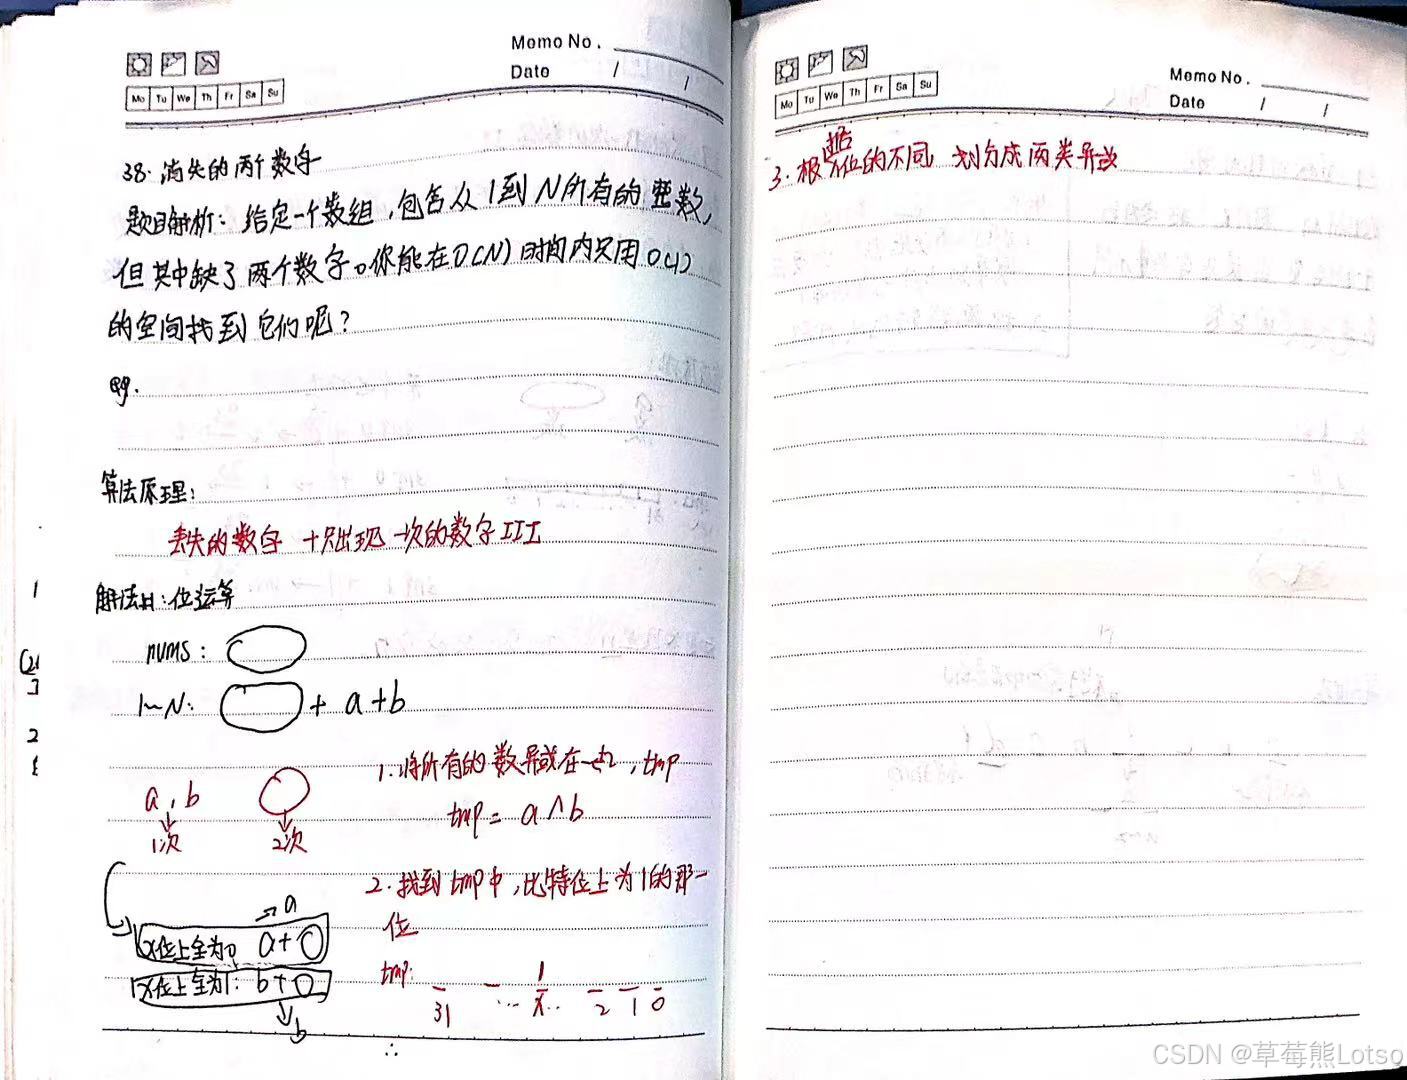 Memo No.
Date / /
Mo Tu We Th Fr Sa Su
38. 消失的两个数字
题目解析: 给定一个数组,包含从1到N所有的整数,
但其中缺了两个数字。你能在O(N)时间内只用O(1)
的空间找到它们呢?
eg.
算法原理:
丢失的数字 + 只出现一次的数字III
解法: 位运算
nums:
1~N: + a+b
1. 将所有的数异或在一起, tmp
tmp = a ^ b
a, b
1次 2次
2. 找到tmp中, 比特位上为1的那一
位
a
x位上全为0 a+
x位上全为1: b+
b
tmp:
1
31 ... x.. 2 1 0
∴
1
2
Memo No.
Date / /
Mo Tu We Th Fr Sa Su
3. 根据x位的不同 划分成两类异或
CSDN @草莓熊Lotso